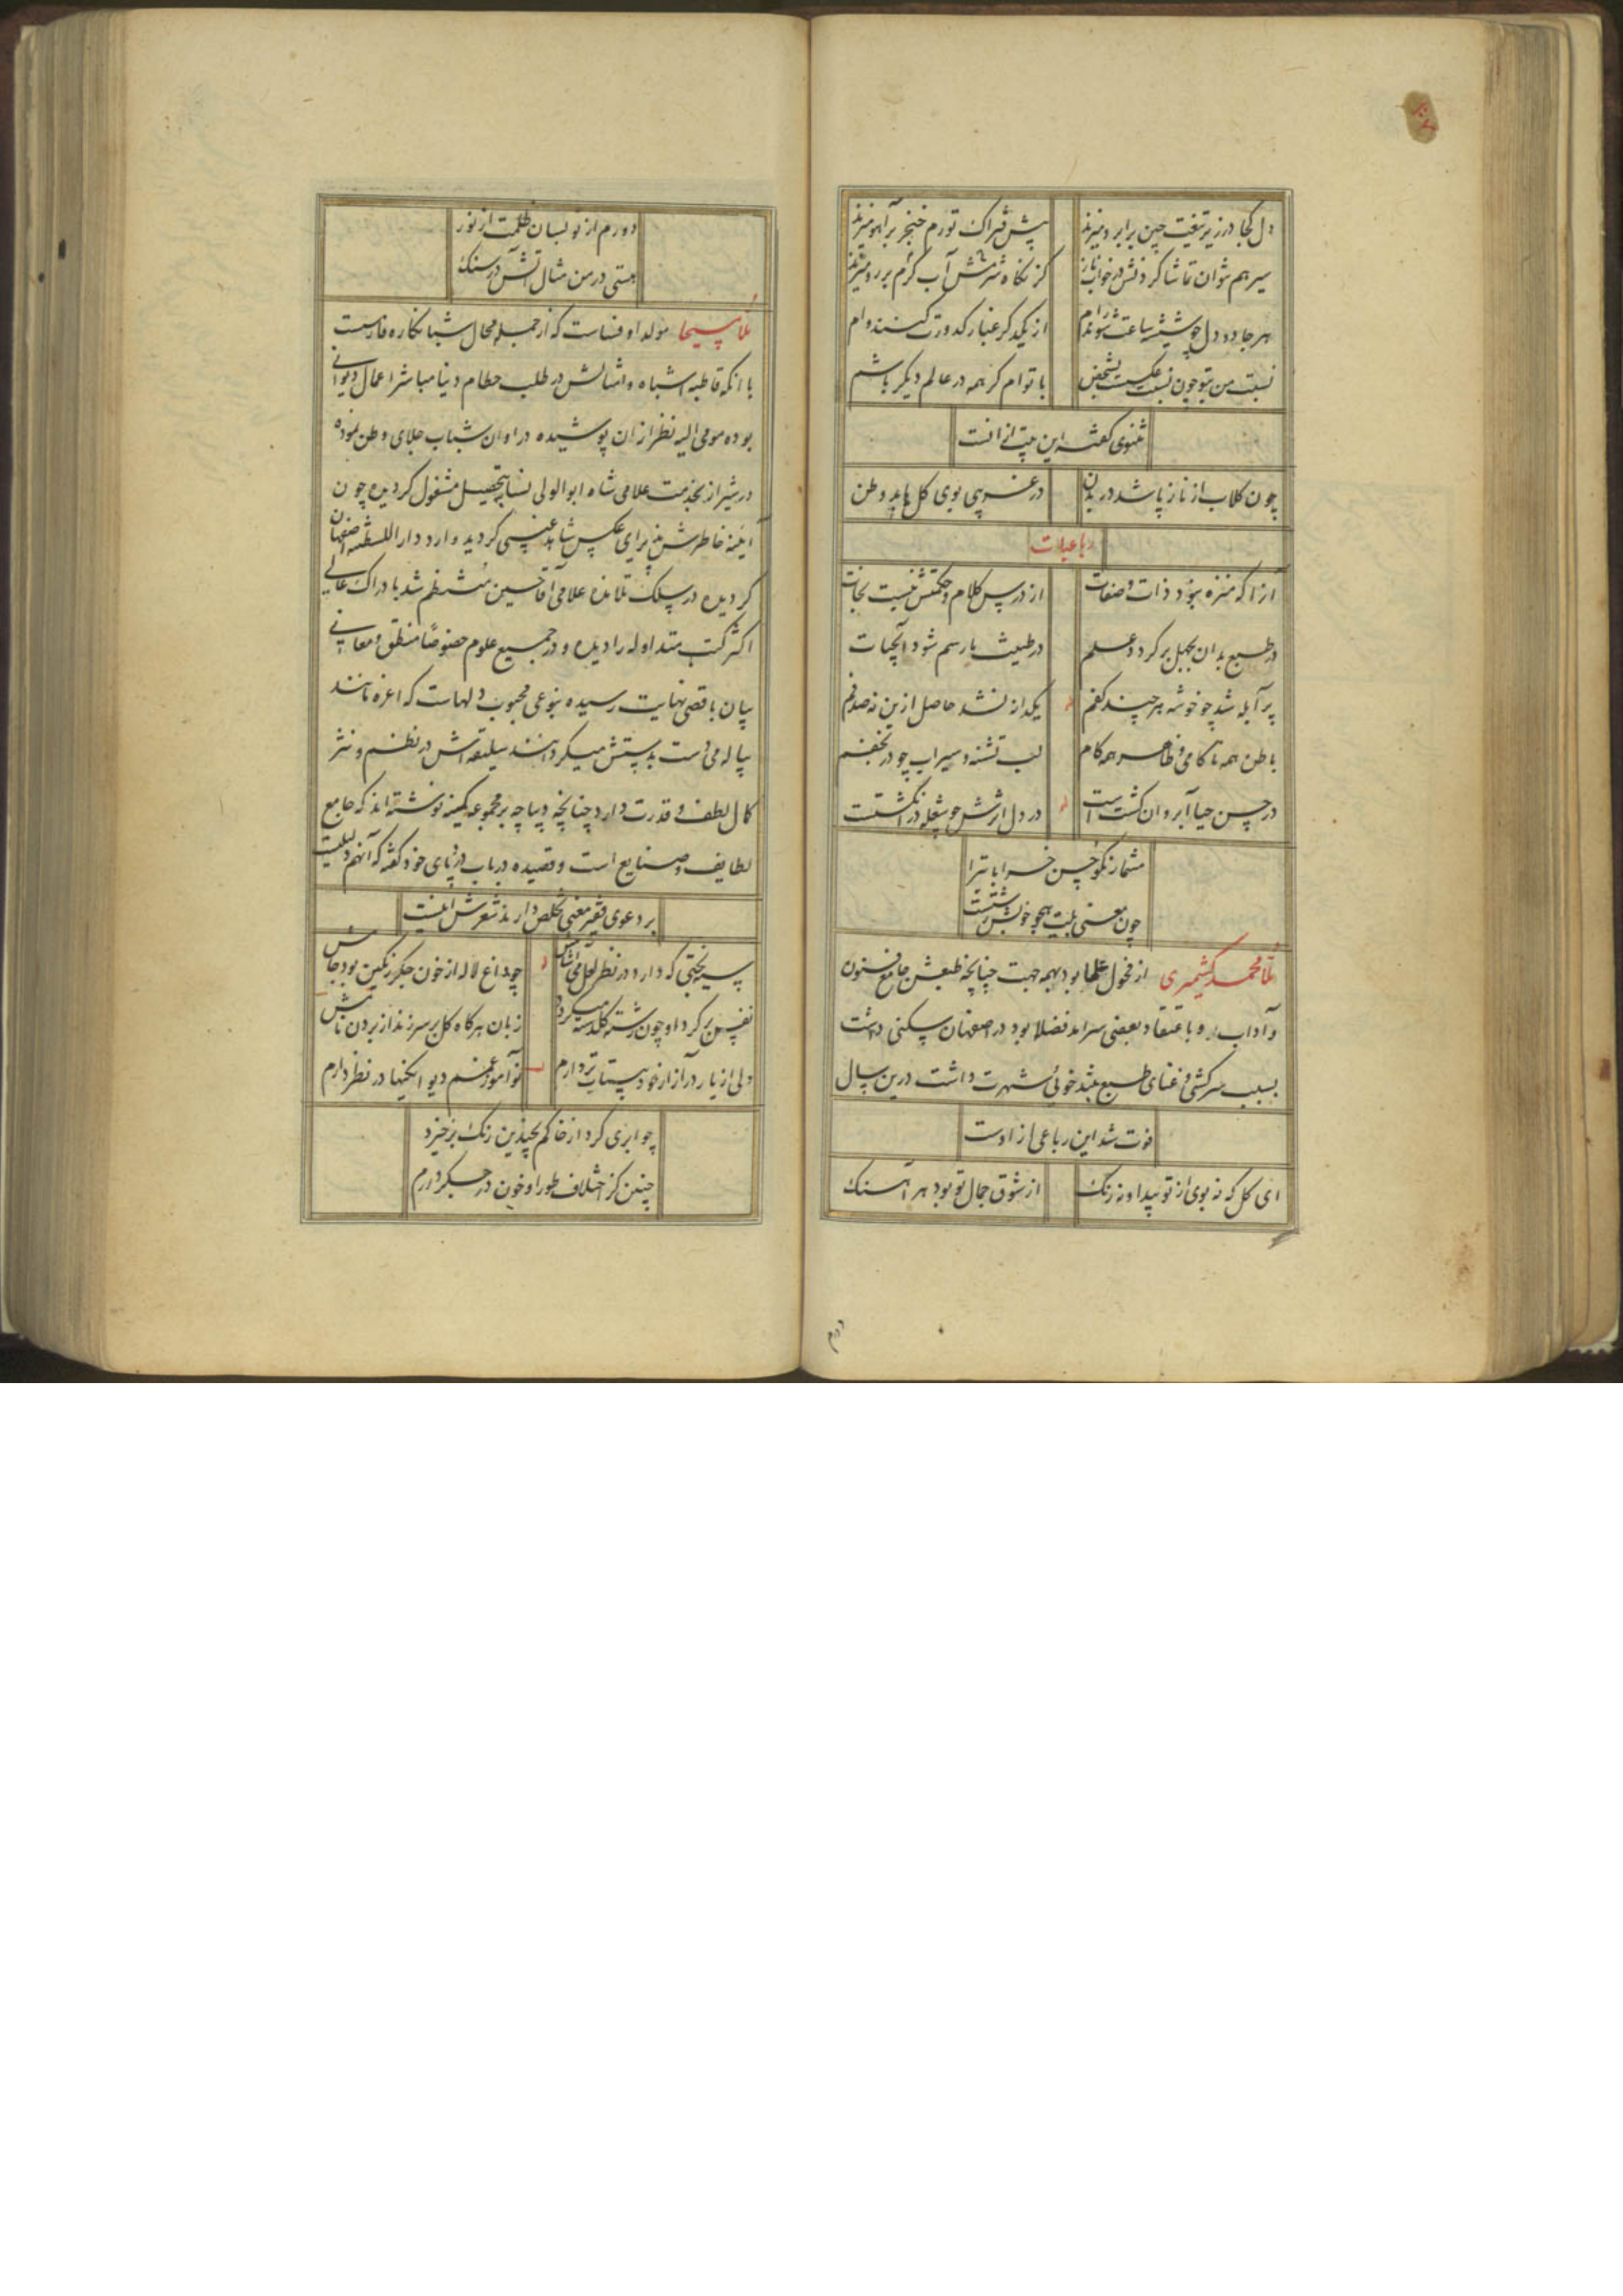 دل کجا در زیر تیغت چین بر ابرو میزند پیش فتراک تو رم خنجر بر آهو میزند
سیر هم نتوان تماشا کردنش در خواب ناز کز نگاه شرمش آب گرم بر رو میزند
هر جا دو دل چو شیشه ساعت شوند رام از یکدگر غبار کدورت کنند وام
نسبت من بتو چون نسبت عکسیست بشخص با توام گر همه در عالم دیگر باشم
مثنوی گفته این بیت از انست
چون گلاب از ناز پاشد در بدن در غریبی بوی گل یابد وطن
رباعیات
آنرا که منزه نبود ذات و صفات از درس کلام و حکمتش نیست نجات
در طبع بدان بجهل برگردد علم در طینت مار سم شود آب حیات
پر آبله شد چو خوشه هر چند کفم یکدانه نشد حاصل ازین نه صدفم
باطن همه ناکامی و ظاهر همه کام لب تشنه و سیراب چو در نجفم
در حسن حیا آبروان گشت است در دل اثرش چو شعله در انگشتست
مشمار نکو حسن خراباتی را
چون معنی بیت هجو خوبش زشتست
ملا محمد کشمیری از فحول علما بود بهمه جهت چنانچه طبعش جامع فنون
و آداب و باعتقاد بعضی سرامد فضلا بود در اصفهان سکنی داشت
بسبب سرکشی و غنای طبع بتند خوئی شهرت داشت درین سال
فوت شد این رباعی از اوست
ای گل که نه بوی از تو پیدا و نه رنگ از شوق جمال تو بود هر آهنگ
دورم از تو بسان ظلمت از نور
هستی در من مثال آتش در سنگ
ملا مسیحا مولد او فساست که از جمله محال شبانکاره فارست
با انکه قاطبه اشباه و امثالش در طلب حطام دنیا مباشر اعمال دیوانی
بوده مومی الیه نظر از ان پوشیده در اوان شباب جلای وطن نموده
در شیراز بخدمت علامی شاه ابوالولی نسابه تحصیل مشغول گردیده چون
آینه خاطرش پذیرای عکس شاهد غیبی گردید وارد دار السلطنه اصفهان
گردیده در سلک تلامذه علامی آقا حسین منتظم شد بادراک عالی
اکثر کتب متداوله را دیده و در جمیع علوم خصوصا منطق و معانی
بیان باقصی نهایت رسیده بنوعی محبوب دلهاست که اعزه مانند
پیاله می دست بدستش میگردانند سلیقه اش در نظم و نثر
کمال لطف و قدرت دارد چنانچه دیباچه بر مجموعه کمینه نوشته اند که جامع
لطایف و صنایع است و قصیده در باب در پای خود گفته که آنهم دلیلیست
بر دعوی فقیر معنی تخلص دارند شعرش اینست
سیه بختی که دارد در نظر لعل می آشامش چو داغ لاله از خون جگر رنگین بود جامش
نفس بر گرد او چون رشته گلدسته میگردد زبان هر گاه گل بر سر زند از بردن نامش
دلی از یار در آزار خود بیتابتر دارم نوآموز غمم دیوانگیها در نظر دارم
چو ابری گرد از خاکم بچندین رنگ برخیزد
چنین کز اختلاف طور او خون در جگر دارم
دورم